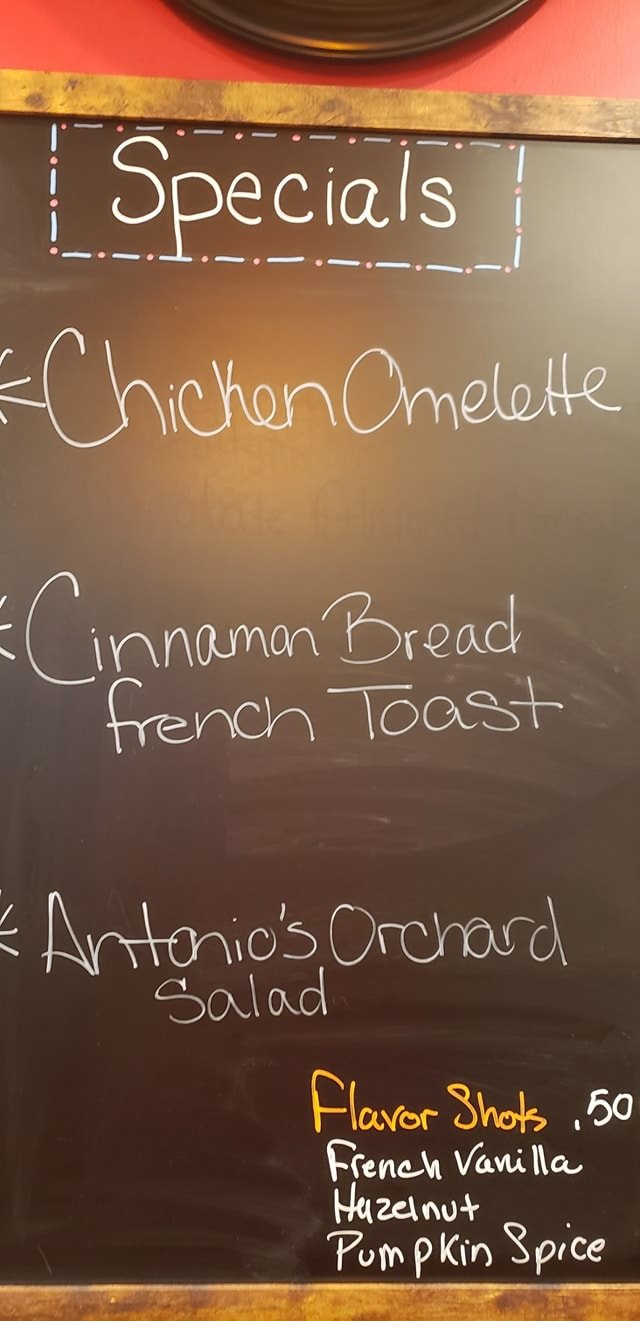 Specials
Chicken Omelette
Cinnamon Bread
french Toast
Antonio's Orchard
Salad
Flavor Shots .50
French Vanilla
Hazelnut
Pumpkin Spice